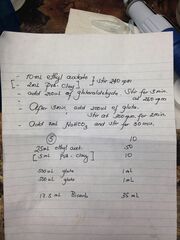 - 10mL ethyl acetate } stir 240 rpm
- 2mL pre. clay
- add 200mL of gluteraldehyde. Stir for 3 min at 260 rpm
- After 3min, add 200mL of gluta.
Stir at 200rpm for 2min.
- Add 2mL NaHCO3 and stir for 30 min.
5 10
25mL ethyl acet. 50
5mL pre. clay 10
500mL gluta 1mL
500mL gluta 1mL
17.5mL Bicarb 35mL